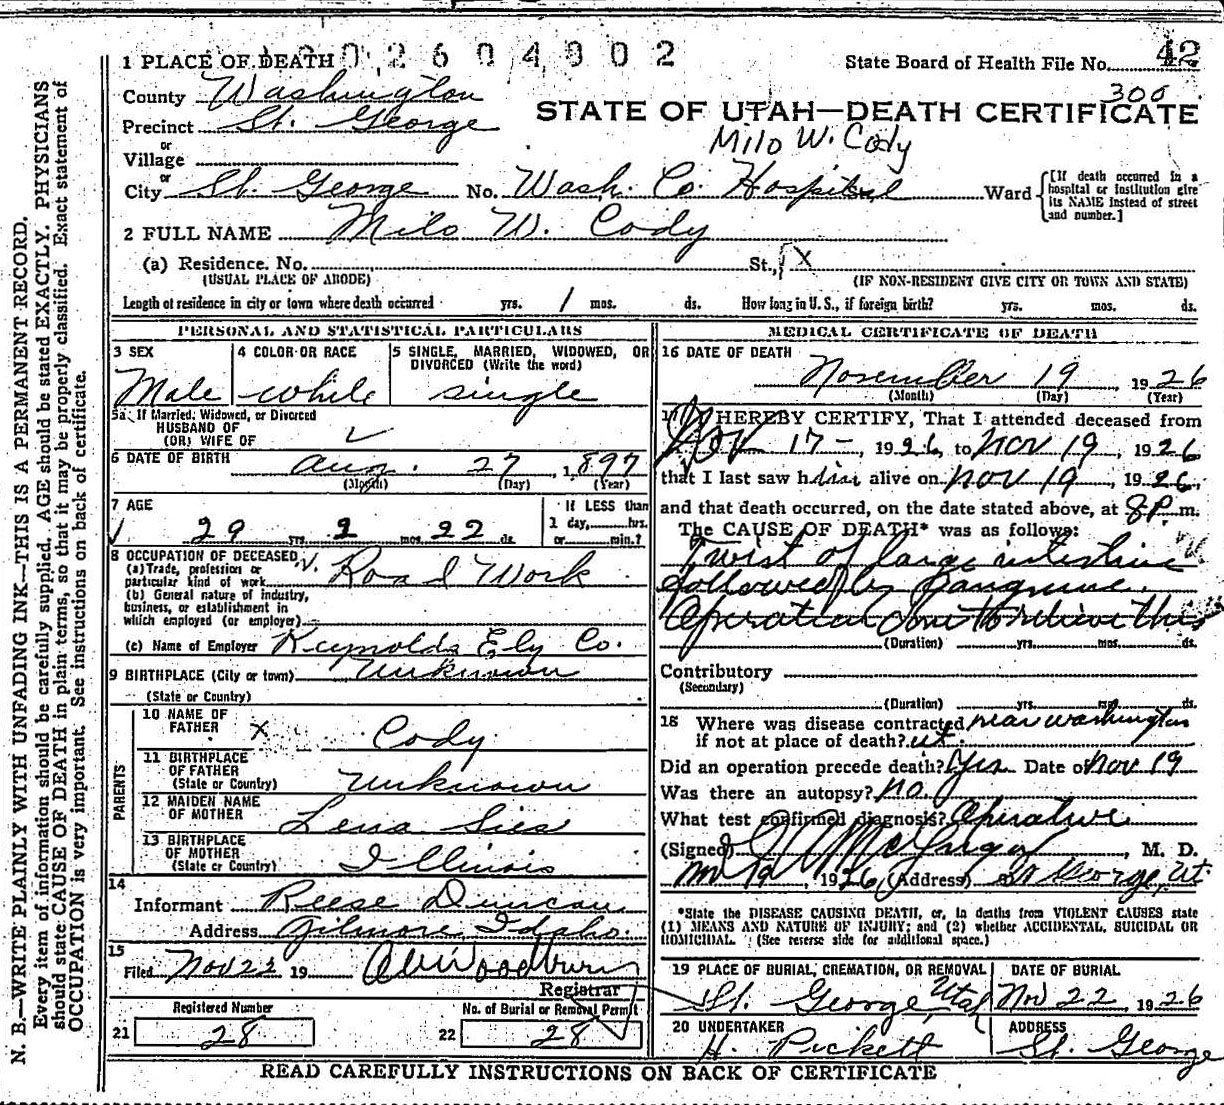 N. B.—WRITE PLAINLY WITH UNFADING INK—THIS IS A PERMANENT RECORD.
Every item of information should be carefully supplied. AGE should be stated EXACTLY. PHYSICIANS
should state CAUSE OF DEATH in plain terms, so that it may be properly classified. Exact statement of
OCCUPATION is very important. See instructions on back of certificate.
2604002
1 PLACE OF DEATH
State Board of Health File No. 42
300
County Washington
STATE OF UTAH—DEATH CERTIFICATE
Precinct St. George
Milo W. Cody
or
Village
or
City St. George No. Wash. Co. Hospital Ward
[If death occurred in a
hospital or institution give
its NAME instead of street
and number.]
2 FULL NAME Milo W. Cody
(a) Residence. No. St., X
(USUAL PLACE OF ABODE)
(IF NON-RESIDENT GIVE CITY OR TOWN AND STATE)
Length of residence in city or town where death occurred yrs. 1 mos. ds. How long in U. S., if foreign birth? yrs. mos. ds.
PERSONAL AND STATISTICAL PARTICULARS
3 SEX
Male
4 COLOR OR RACE
white
5 SINGLE, MARRIED, WIDOWED, OR
DIVORCED (Write the word)
single
5a If Married, Widowed, or Divorced
HUSBAND OF
(OR) WIFE OF
6 DATE OF BIRTH Aug. 27 1897
(Month) (Day) (Year)
7 AGE
29 yrs. 2 mos. 22 ds.
If LESS than
1 day, hrs.
or min.?
8 OCCUPATION OF DECEASED
(a) Trade, profession or
particular kind of work Road Work
(b) General nature of industry,
business, or establishment in
which employed (or employer)
(c) Name of Employer Reynolds Ely Co.
9 BIRTHPLACE (City or town) Unknown
(State or Country)
PARENTS
10 NAME OF
FATHER X Cody
11 BIRTHPLACE
OF FATHER
(State or Country) Unknown
12 MAIDEN NAME
OF MOTHER Lena Sies
13 BIRTHPLACE
OF MOTHER
(State or Country) Illinois
14
Informant Reese Duncan
Address Gilmore, Idaho.
15
Filed Nov 22 19 Woodbury
Registrar
Registered Number
21 28
No. of Burial or Removal Permit
22 28
MEDICAL CERTIFICATE OF DEATH
16 DATE OF DEATH
November 19 1926
(Month) (Day) (Year)
17 I HEREBY CERTIFY, That I attended deceased from
Nov 17 -, 1926, to Nov 19, 1926
that I last saw him alive on Nov 19, 1926,
and that death occurred, on the date stated above, at 8 P. m.
The CAUSE OF DEATH* was as follows:
Twist of large intestine
followed by Gangrene.
Operation done to relieve this
(Duration) yrs. mos. ds.
Contributory
(Secondary)
(Duration) yrs. mos. ds.
18 Where was disease contracted near Washington
if not at place of death? Ut.
Did an operation precede death? Yes Date of Nov 19
Was there an autopsy? No.
What test confirmed diagnosis? Operative
(Signed) McGregor, M. D.
19, 1926 (Address) St George, Ut
*State the DISEASE CAUSING DEATH, or, in deaths from VIOLENT CAUSES state
(1) MEANS AND NATURE OF INJURY; and (2) whether ACCIDENTAL, SUICIDAL OR
HOMICIDAL. (See reverse side for additional space.)
19 PLACE OF BURIAL, CREMATION, OR REMOVAL
St. George, Utah
DATE OF BURIAL
Nov 22 1926
20 UNDERTAKER
H. Pickett
ADDRESS
St. George
READ CAREFULLY INSTRUCTIONS ON BACK OF CERTIFICATE